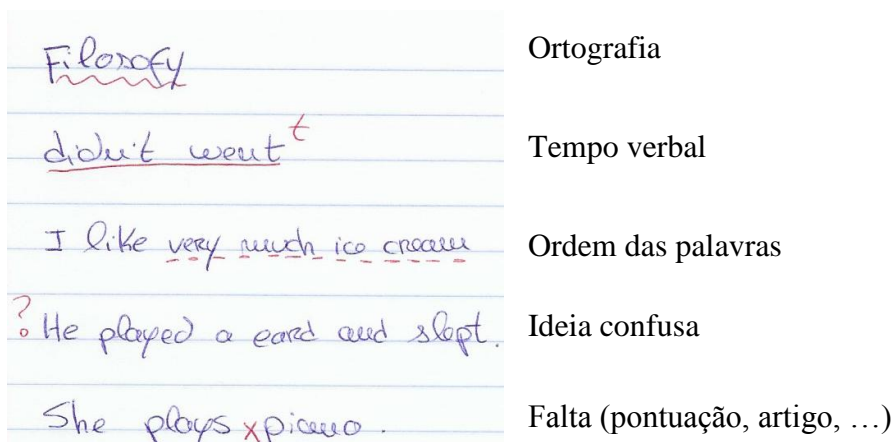 Filosofy Ortografia
didn't went t Tempo verbal
I like very much ice cream Ordem das palavras
? He played a card and slept. Ideia confusa
She plays x piano. Falta (pontuação, artigo, …)